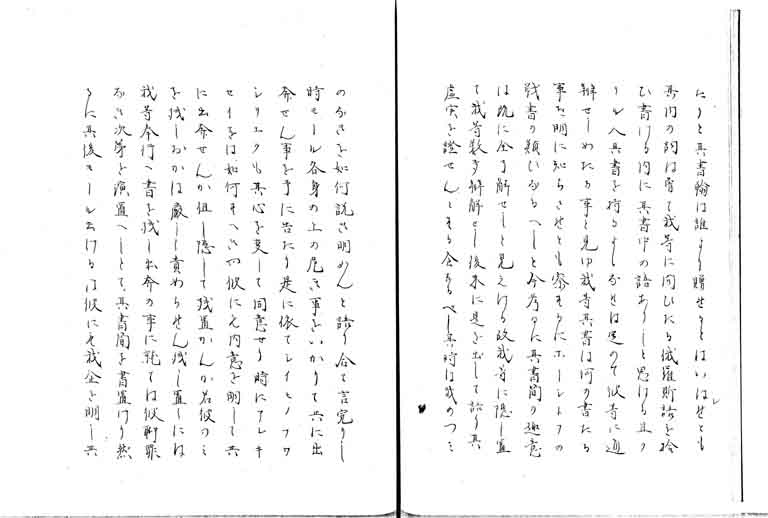 其書翰は誰より贈せりとはいはせとも
其内の詞は曾て我等に問ひたる俄羅斯語を拾
ひ書ける内に其書中の語ありしと思ける且ク
ルヘ其書を持るよしなせは定めて彼等に通
辨せしめたる事と見ゆ我等其書は何の書たる
事を明に知らさせとも察するにホーレトフの
残書の類ひなるへしと今考るに其書簡の趣意
は既に全く解せしと見えける故我等に隠し置
て我等数多解せし後に是を出して語り其
虚実を證せんとする企なるへし其時は我のつミ
のなきを如何説き明めんと語り合て言
時モール各身の上の危き事をいかりて共に出
奔せん事を予に告たり是に依てレイとノフワ
シリエフも其心を変して同意せり時にアレキ
セイをは如何すへき彼にも内意を明して共
に出奔せんか但し隠して残置かんか若彼のミ
を残しおかは厳しく責せん残し置しには
我等奉行へ書を残し出奔の事に就ては彼聊罪
なき次第を演置へしとて其書簡を書置けり然
るに其後モール云けるは彼にも我企を明し共